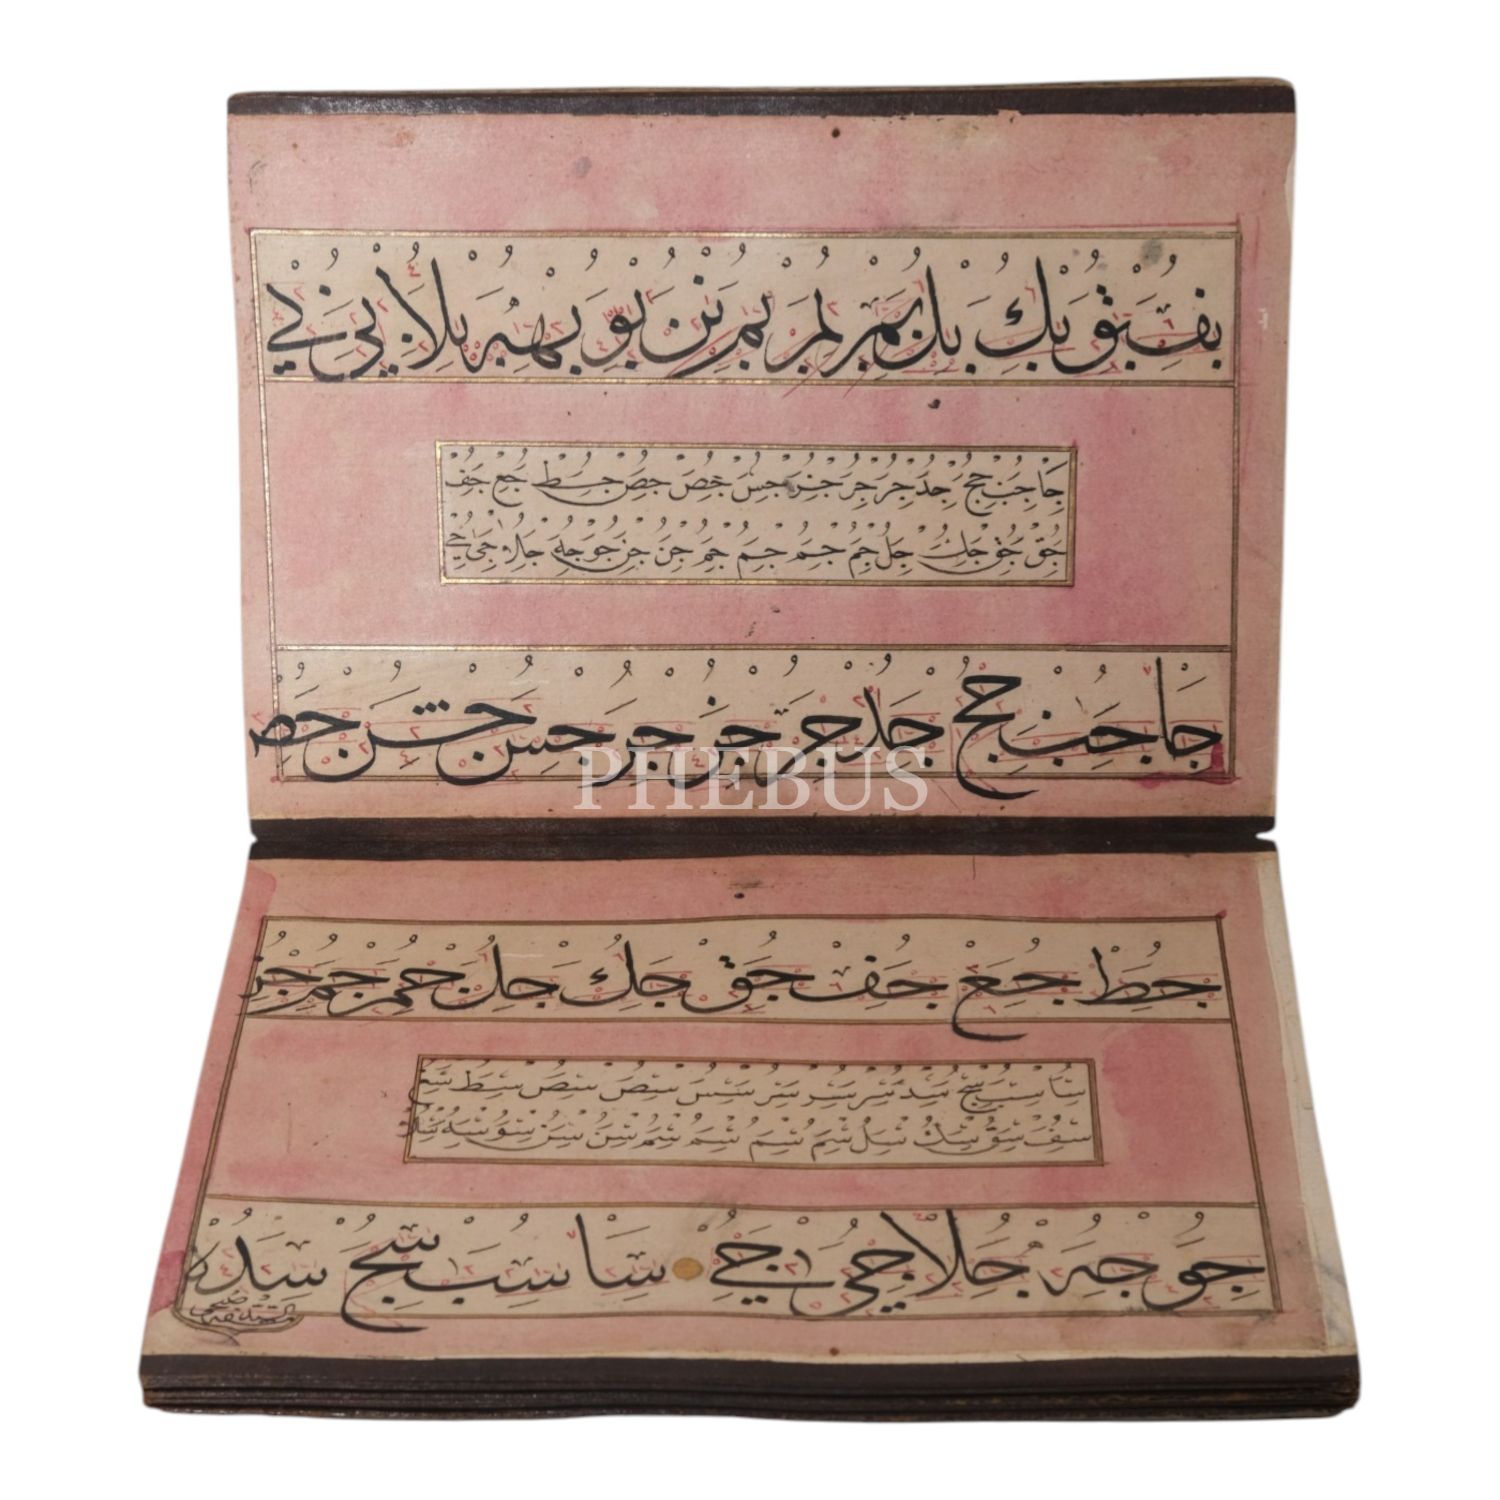 بف بق بك بل بم لم بم بن بو به بلا بي ني
جا جب جج جد جر جر جز جس جص جص جط جع جف
جق جق جك جل جم جم جم جم جن جن جو جه جلا جي جي
جا جب جج جد جر جز جر جس جش جص
PHEBUS
جط جع جف جق جك جل جم جم جن
سا سب سج سد سر سر سر سس سص سص سط سع
سف سق سك سل سم سم سم سم سن سن سو سه سلا
جو جه جلا جي جي سا سب سج سد